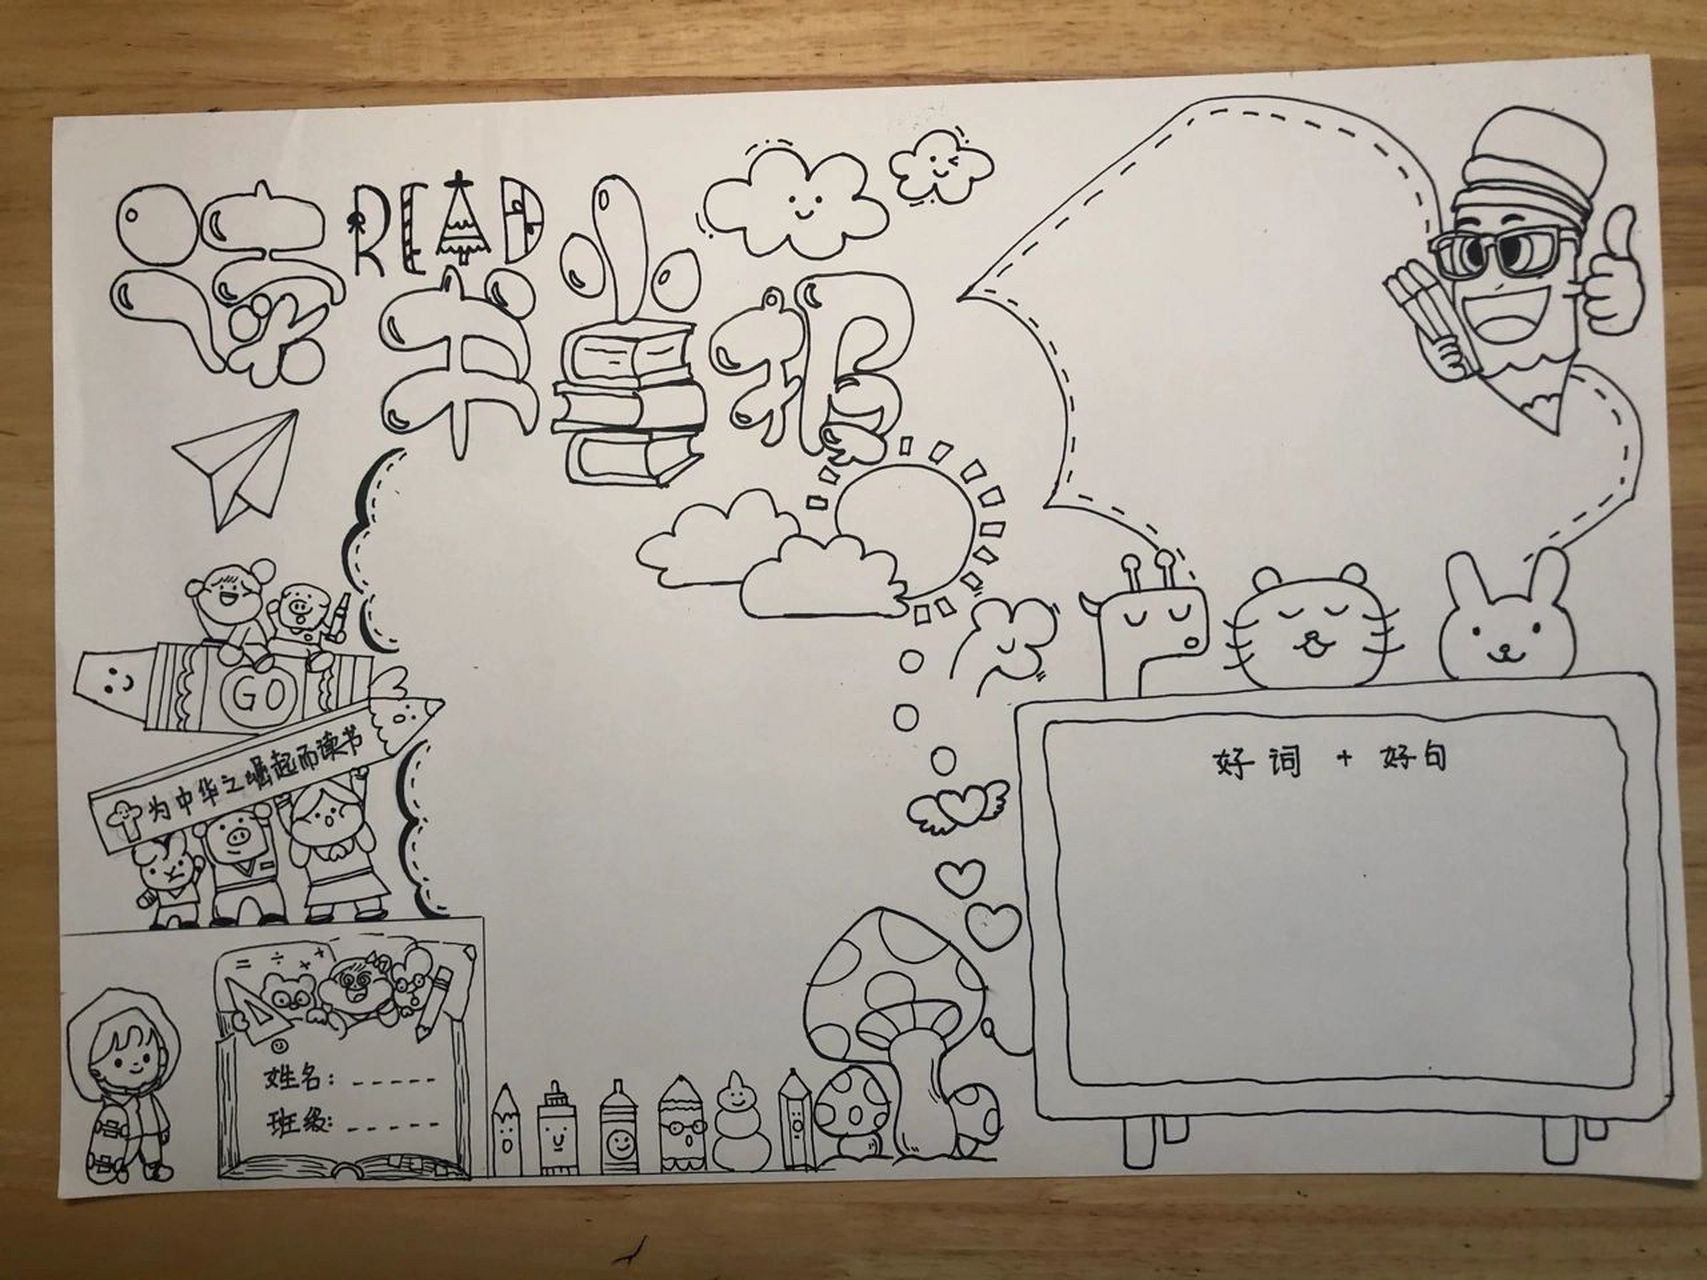 READ
读书小报
GO
为中华之崛起而读书
好词 + 好句
= ÷ × +
姓名: -----
班级: -----